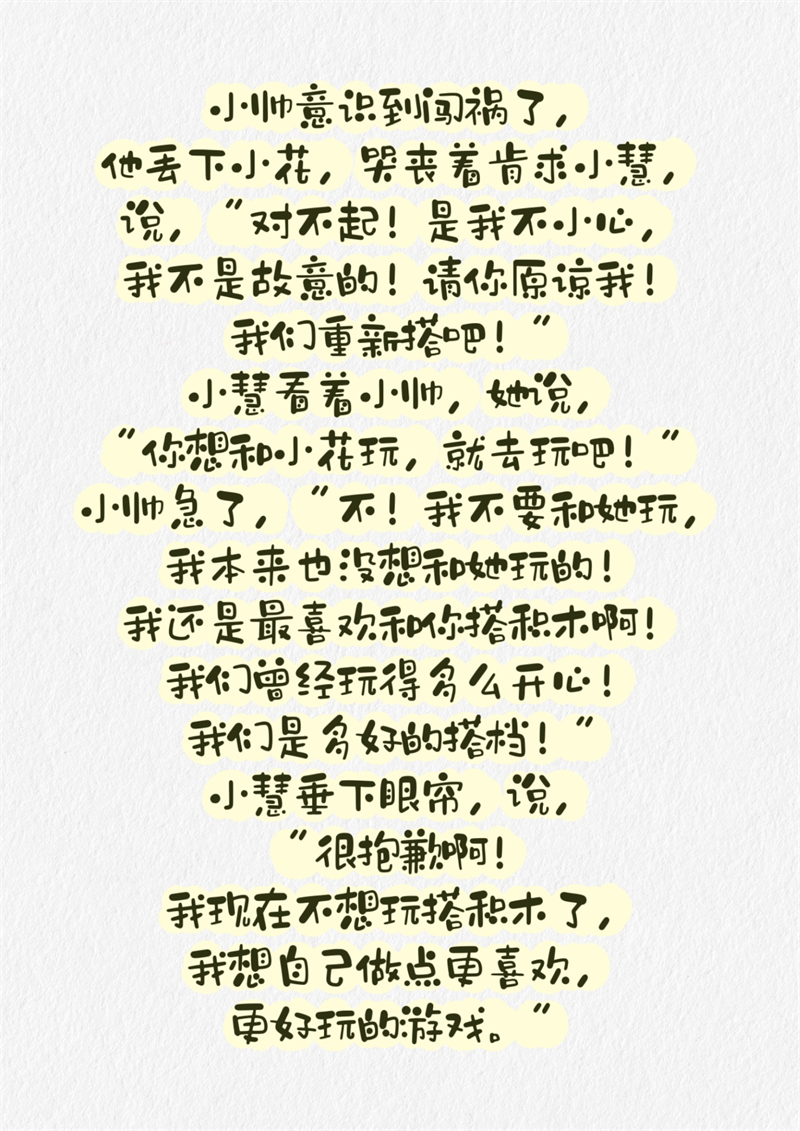 小帅意识到闯祸了，
他丢下小花，哭丧着肯求小慧，
说，“对不起！是我不小心，
我不是故意的！请你原谅我！
我们重新搭吧！”
小慧看着小帅，她说，
“你想和小花玩，就去玩吧！”
小帅急了，“不！我不要和她玩，
我本来也没想和她玩的！
我还是最喜欢和你搭积木啊！
我们曾经玩得多么开心！
我们是多好的搭档！”
小慧垂下眼帘，说，
“很抱歉啊！
我现在不想玩搭积木了，
我想自己做点更喜欢，
更好玩的游戏。”